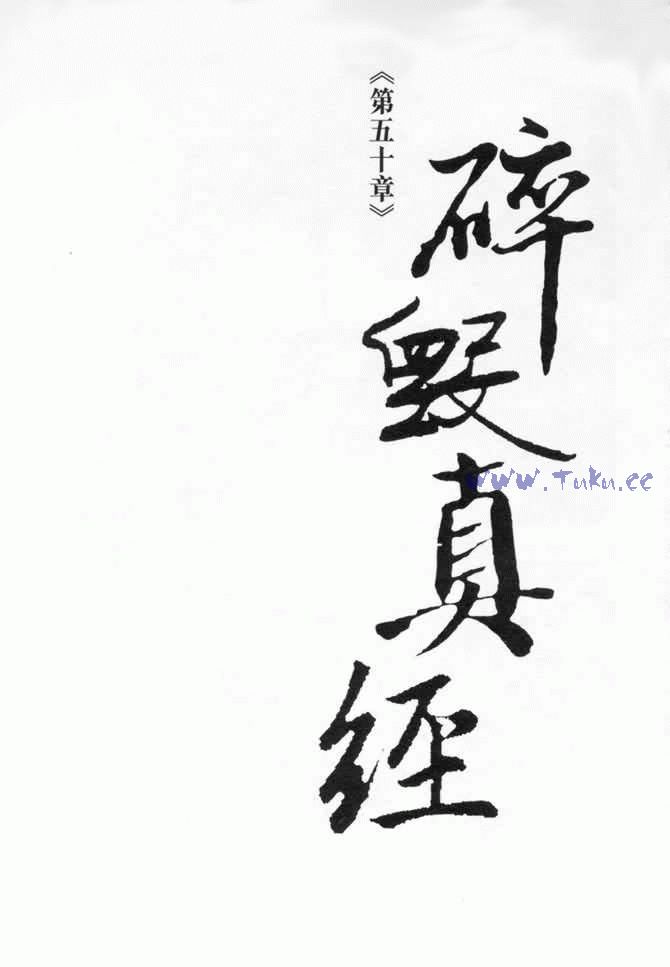 碎毀真經
《第五十章》
www.Tuku.cc